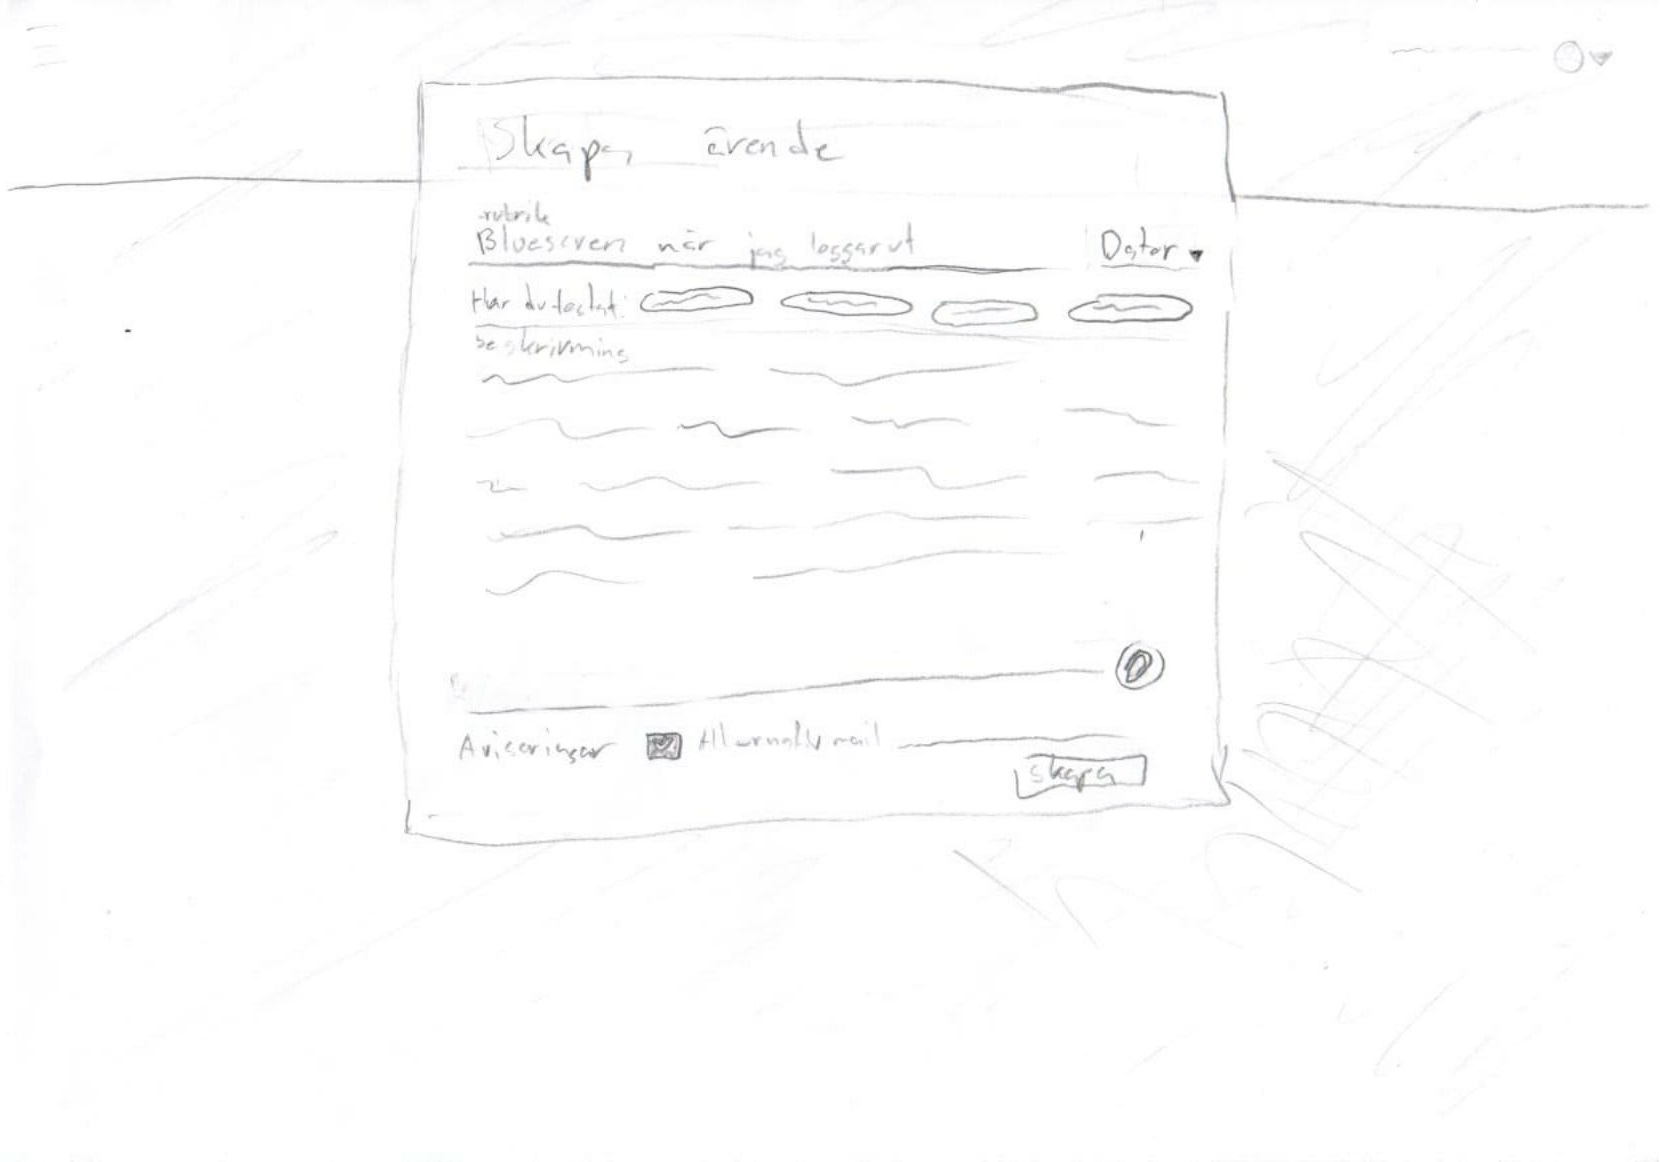 Skapa ärende
rubrik
Bluescreen när jag loggar ut
Dator
Har du testat:
beskrivning
Aviseringar
Alternativ mail
Skapa